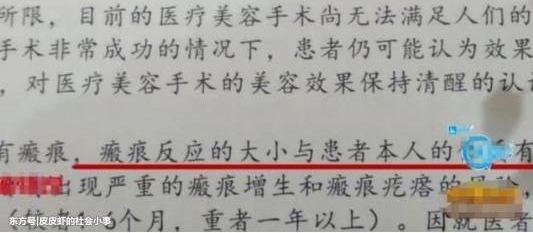 所限，目前的医疗美容手术尚无法满足人们的
手术非常成功的情况下，患者仍可能认为效果
，对医疗美容手术的美容效果保持清醒的认
有瘢痕，瘢痕反应的大小与患者本人的 有
出现严重的瘢痕增生和瘢痕疙瘩的 ，
6个月，重者一年以上）。因就医者
东方号|皮皮虾的社会小事